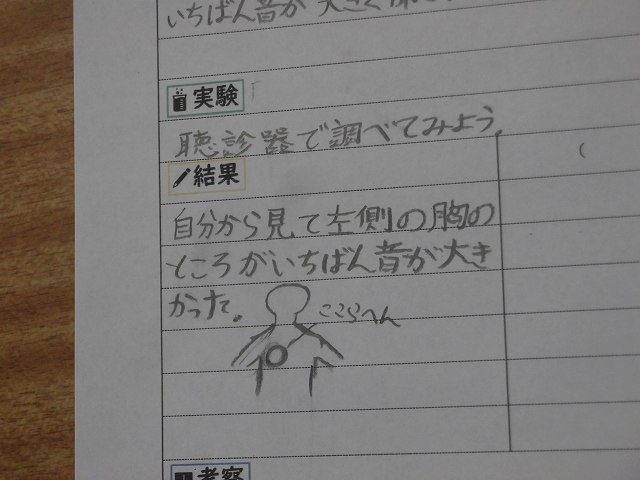 いちばん音が大きく
実験
聴診器で調べてみよう。
結果
自分から見て左側の胸の
ところがいちばん音が大き
かった。
ここらへん
考察